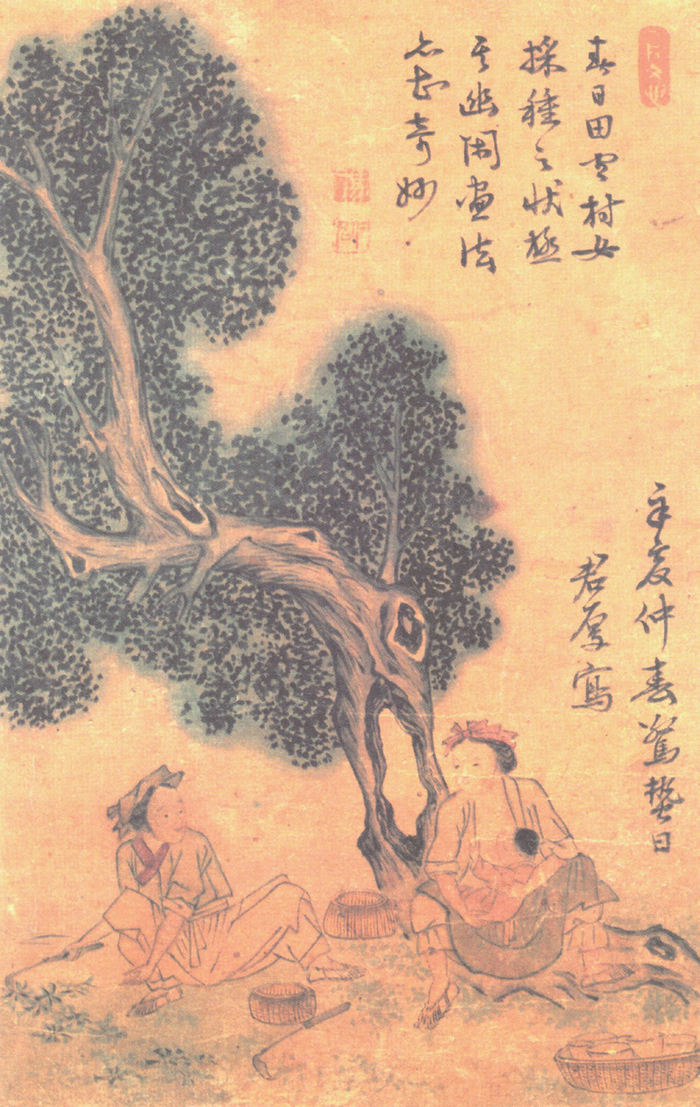 春日田間村女
採種之狀極
其幽閑畫法
亦甚奇妙
辛亥仲春驚蟄日
君厚寫